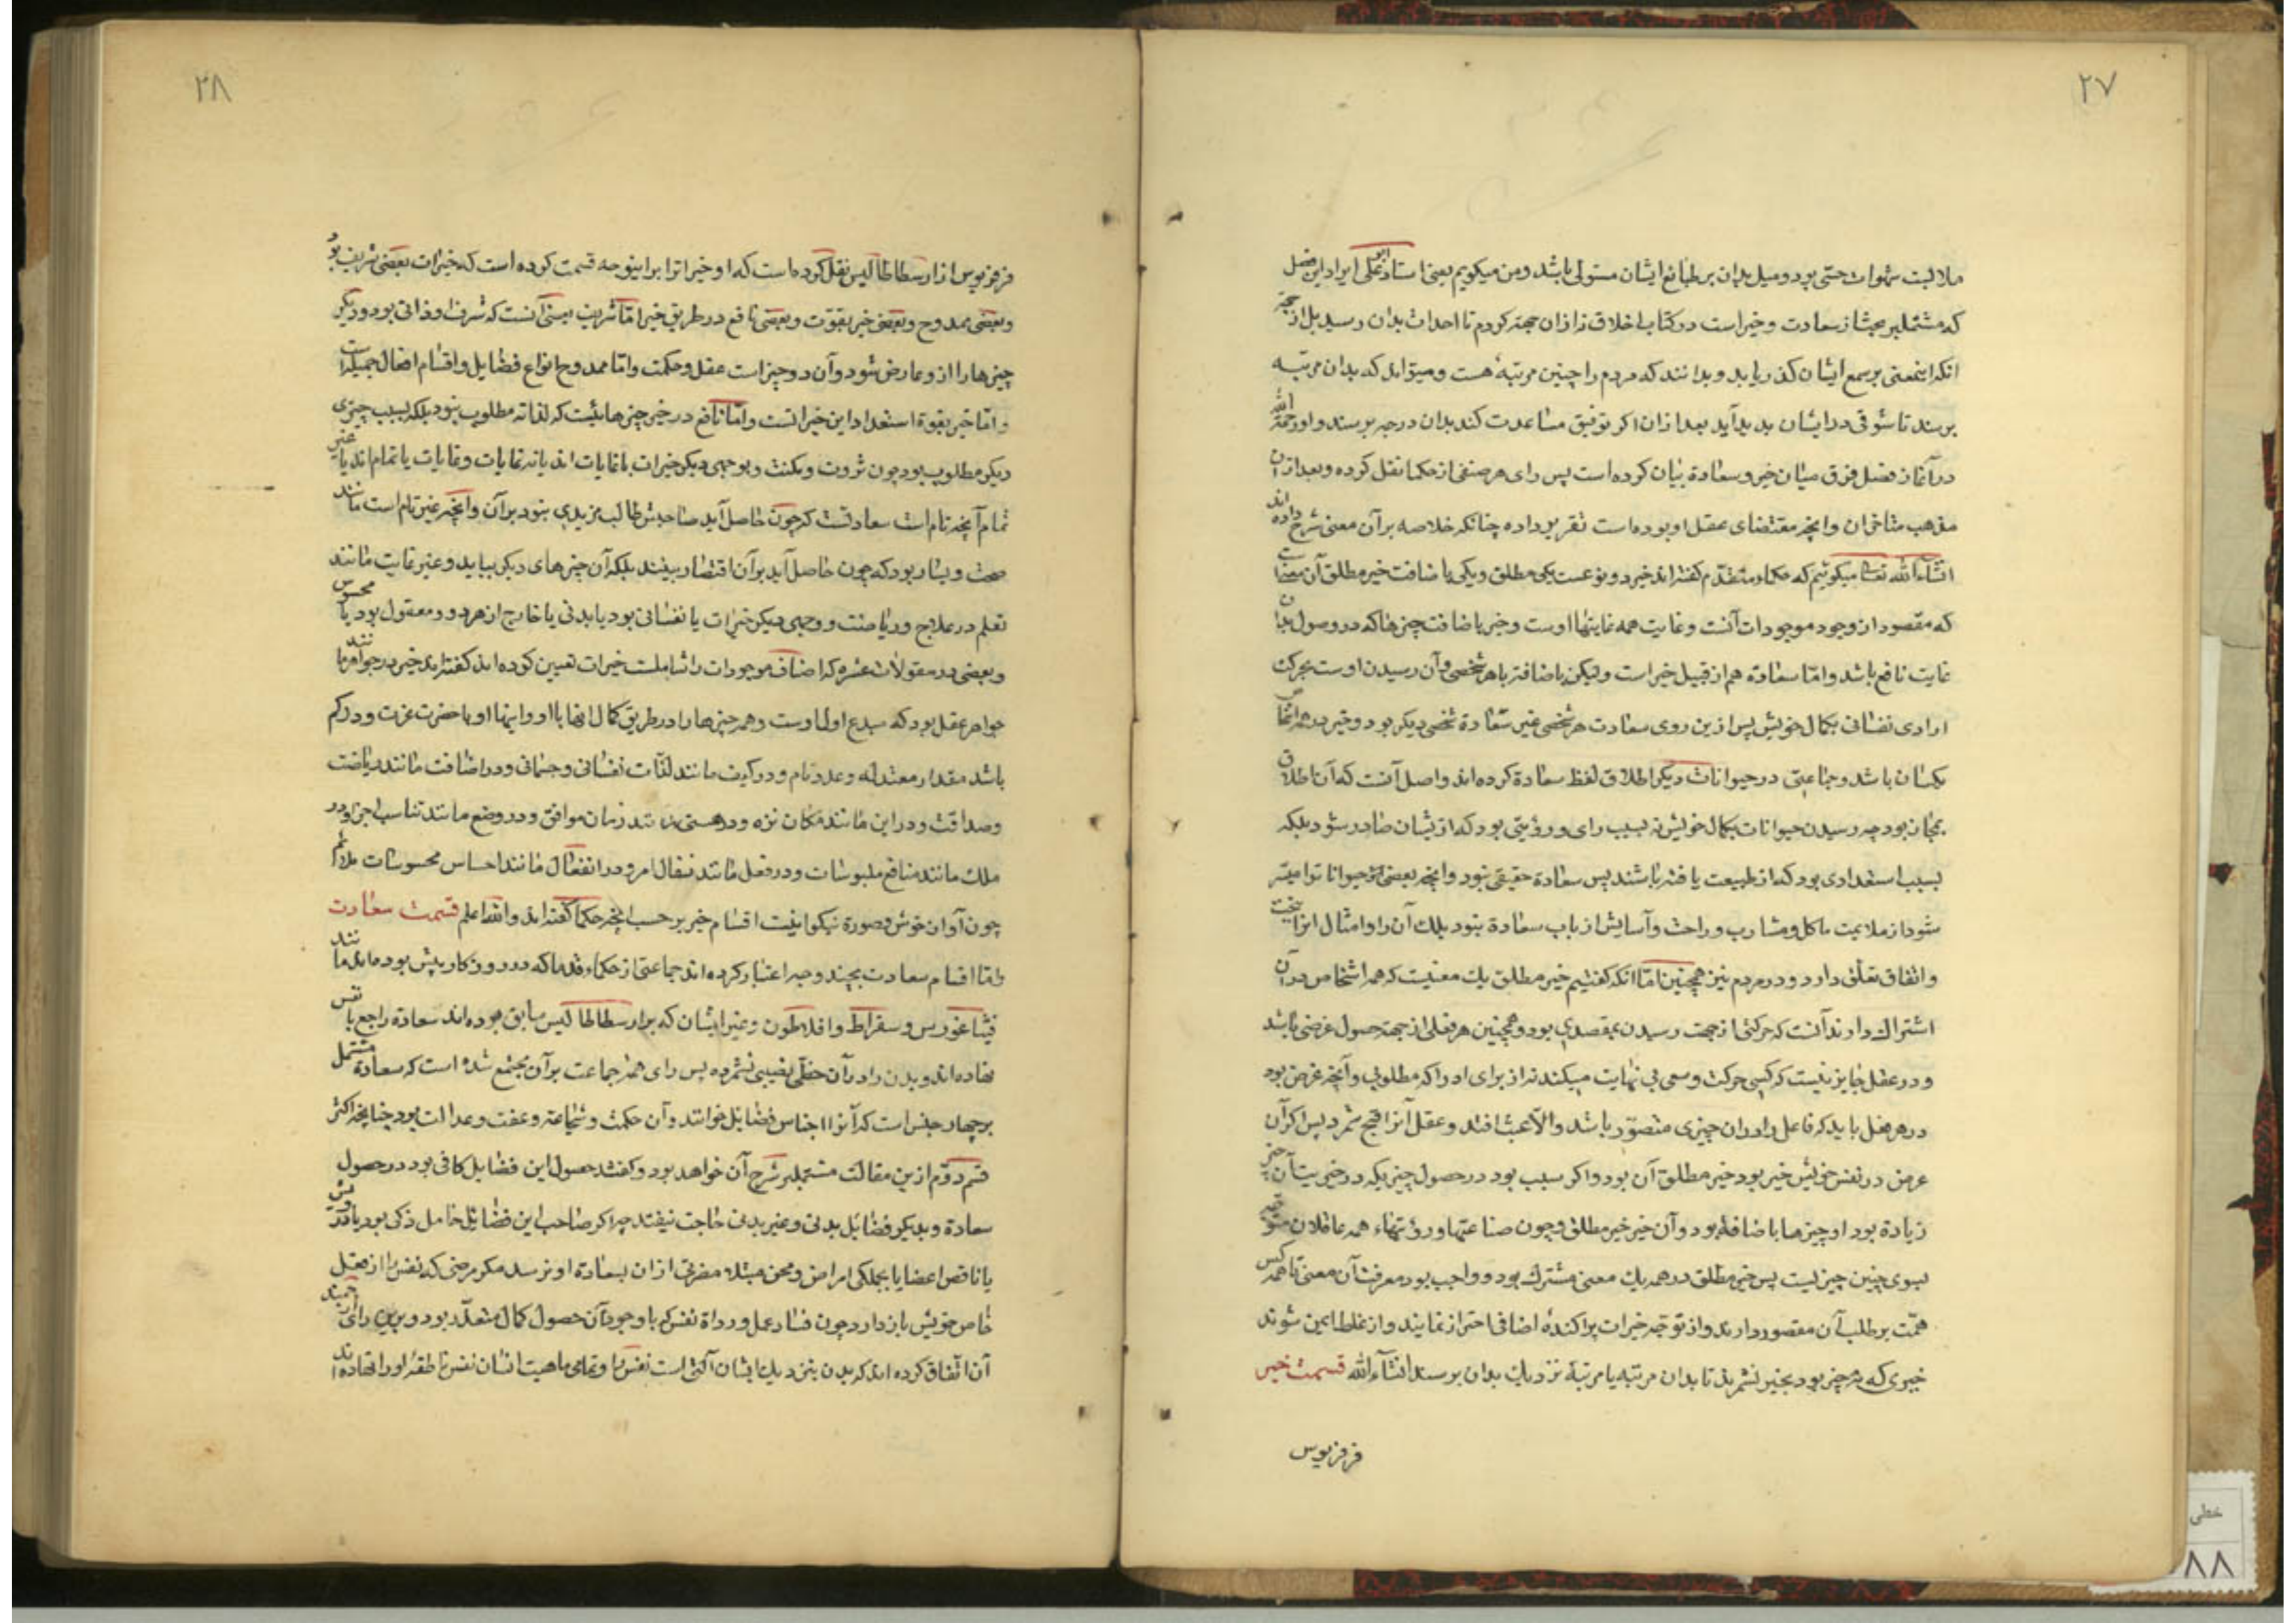 ۲۷
ملابست شهوات حسّی بود و میل بدان بر طبایع ایشان مستولی باشد و من میکویم یعنی استاد ابو علی ایراد این فصل
که مشتملبر بحث از سعادت و خیر است در کتاب اخلاق نه از ان جهة کردم تا احداث بدان رسید بل از جهة
انکه اینمعنی بر سمع ایشان کذر یابد و بدانند که مردم را چنین مرتبهٔ هست و میتواند که بدان مرتبه
برسند تا شوقی در ایشان بدید آید بعد از ان اکر توفیق مساعدت کند بدان درجه برسند و او رحمة الله
در آغاز فصل فرق میان خیر و سعادة بیان کرده است پس رای هر صنفی از حکما نقل کرده و بعد از ان
مذهب متاخران و انچه مقتضای عقل او بوده است تقریر داده چنانکه خلاصه بر آن معنی شرح داده اند
انشاء الله تعالی میکوئیم که حکماء متقدّم کفته اند خیر دو نوعست یکی مطلق و یکی باضافت خیر مطلق آن معنیست
که مقصود از وجود موجودات آنست و غایت همه غایتها اوست و خیر باضافت چیزهاکه در وصول بدان
غایت نافع باشد و امّا سعادة هم از قبیل خیر است ولیکن باضافتر باهر شخصی و آن رسیدن اوست بحرکت
ارادی نفسانی بکمال خویش پس ازین روی سعادت هر شخصی غیر سعادة شخصی دیکر بود و خیر در همه اشخاص
یکسان باشد و جماعتی در حیوانات دیکر اطلاق لفظ سعادة کرده اند و اصل آنست که آن اطلاق
بمجاز بود چه رسیدن حیوانات بکمال خویش نه بسبب رای و رؤیتی بود که از یشان صادر شود بلکه
بسبب استعدادی بود که از طبیعت یافته باشند پس سعادة حقیقی نبود و انچه بعضی از حیوانات را میسّر
شود از ملایمت ماکل و مشارب و راحت و آسایش از باب سعادة نبود بلک آن را و امثال انرا ببخت
و اتفاق تعلّق دارد و در مردم نیز همچنین امّا انکه کفتیم خیر مطلق یک معنیست که همه اشخاص در ان
اشتراک دارند آنست که حرکتی از جهت رسیدن بمقصدی بود و همچنین هر فعلی از جهة حصول غرضی باشد
و در عقل جایز نیست که کسی حرکت و سعی بی نهایت میکند نه از برای ادراکه مطلوبی و آنچه غرض بود
در هر فعل باید که فاعل را در ان چیزی متصوّر باشد و الّا عبث افتد و عقل آنرا قبیح شمرد پس اکر آن
غرض در نفس خویش خیر بود خیر مطلق آن بود و اکر سبب بود در حصول چیزیکه در خیریت آن چیز
زیادة بود او چیز ما باضافة بود و آن خیر خیر مطلق و چون صناعتها و رؤیتهاء همه عاقلان متوجه
بسوی چنین چیزیست پس خیر مطلق در همه یک معنی مشترک بود و واجب بود معرفت آن معنی تا همه کس
همّت بر طلب آن مقصور دارند و از توجه خیرات پراکندهٔ اضافی احتراز نمایند و از غلط ایمن شوند
خیری که نه خیر بود بخیر نشمرند تا بدان مرتبه یا مرتبهٔ نزدیک بدان برسند انشاء الله قسمت خیر
فرفریوس
۲۸
فرفریوس از ارسطاطالیس نقل کرده است که او خیراترا براینوجه قسمت کرده است که خیرات بعضی شریف بود
و بعضی ممدوح و بعضی خیر بقوّت و بعضی نافع در طریق خیر امّا شریف بعضی آنست که شرف او ذاتی بود و دیکر
چیزها را از و عارض شود و آن دو چیز است عقل و حکمت و امّا ممدوح انواع فضایل و اقسام افعال جمیله است
و امّا خیر بقوة استعداد این خیراتست و امّا نافع در خیر چیزهائیست که لذاته مطلوب نبود بلکه بسبب چیزی
دیکر مطلوب بود چون ثروت و مکنت و بوجهی دیکر خیرات یا غایات اند یا نه غایات و غایات یا تمام اند یا غیر
تمام آنچه تام است سعادتست که چون حاصل آید صاحبش طالب مزیدی نبود بر آن و انچه غیر تام است مانند
صحت و یسار بود که چون حاصل آید بر آن اقتصار نیفتد بلکه آن چیزهای دیکر بیاید و غیر غایت مانند
تعلم در علاج و ریاضت و وجهی دیکر خیرات یا نفسانی بود یا بدنی یا خارج از هر دو و معقول بود یا محسوس
و بعضی در مقولات عشره که اصناف موجودات را شاملست خیرات تعیین کرده اند کفته اند خیر در جواهر مانند
جواهر عقل بود که مبدع اول اوست و همه چیزها را در طریق کمال انتها با او و انتهاء او با حضرت عزت و در کم
باشد مقدار معتدله و عدد تام و در کیف مانند لذّات نفسانی و جسمانی و در اضافت مانند ریاضت
و صداقت و در این مانند مکان نزه و در متی مانند زمان موافق و در وضع مانند تناسب اجزا و در
ملک مانند منافع ملبوسات و در فعل مانند نفاذ امر و در انفعال مانند احساس محسوسات ملائم
چون آواز خوش و صورة نیکو اینست اقسام خیر بر حسب انچه حکما کفته اند والله اعلم قسمت سعادت
و امّا اقسام سعادت بچند وجه اعتبار کرده اند جماعتی از حکماء قدما که در روزکار پیش بوده اند مانند
فیثاغورس و سقراط و افلاطون و غیر ایشان که بر ارسطاطالیس سابق بوده اند سعادة راجع با نفس
نهاده اند و بدن را در آن حظّی و نصیبی نشمرده پس رای همه جماعت بر آن مجتمع شده است که سعادة مشتمل
بر چهار جنس است که آنرا اجناس فضایل خوانند و آن حکمت و شجاعة و عفت و عدالت بود چنانچه اکثر
قسم دوّم ازین مقالت مشتملبر شرح آن خواهد بود و کفتند حصول این فضایل کافی بود در حصول
سعادة و بدیکر فضائل بدنی و غیر بدنی حاجت نیفتد چه اکر صاحب این فضائل خامل ذکر بود یا درویش
یا ناقص اعضا یا بجملکی امراض و محن مبتلا مضرتی از ان بسعادة او نرسد مکر مرضی که نفس را از فعل
خاص خویش باز دارد چون فساد عقل و رداة نفس که با وجود آن حصول کمال متعذّر بود و برین رای
آن اتّفاق کرده اند که بدن بنزدیک ایشان آلتی است نفس را و تمامی ماهیت انسان نفس ناطقهٔ او را نهاده اند
خطی
۸۸